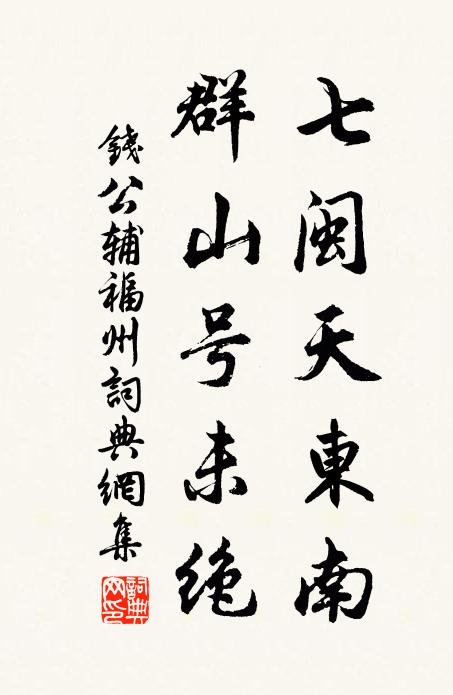 七闽天東南
群山号未绝
錢公辅福州詞典網集
詞典网印